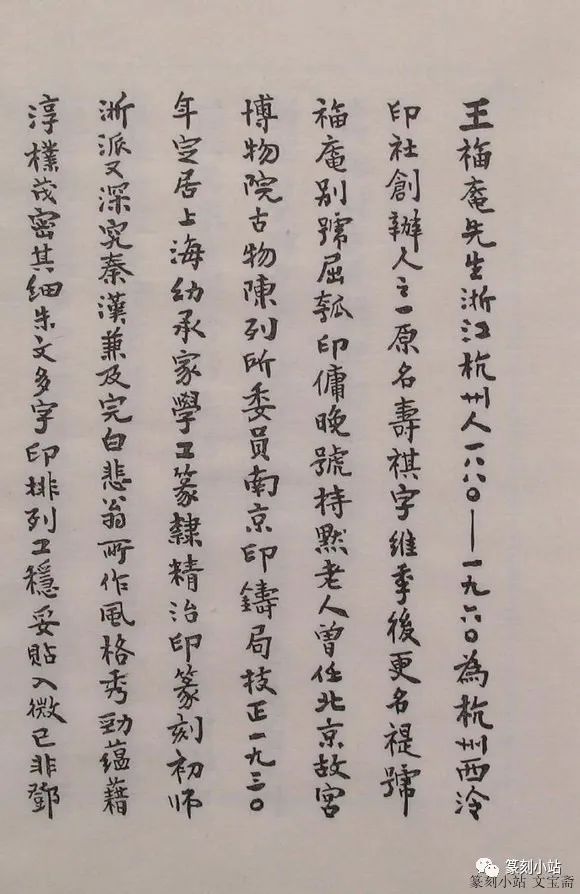 王福庵先生浙江杭州人一八八〇—一九六〇為杭州西泠
印社創辦人之一原名壽祺字維季後更名禔號
福庵别號屈瓠印傭晚號持默老人曾任北京故宮
博物院古物陳列所委員南京印鑄局技正一九三〇
年定居上海幼承家學工篆隸精治印篆刻初师
浙派又深究秦漢兼及完白悲翁所作風格秀勁蕴藉
淳樸茂密其细朱文多字印排列工穩妥貼入微已非鄧
篆刻小站
篆刻小站 文宝斋